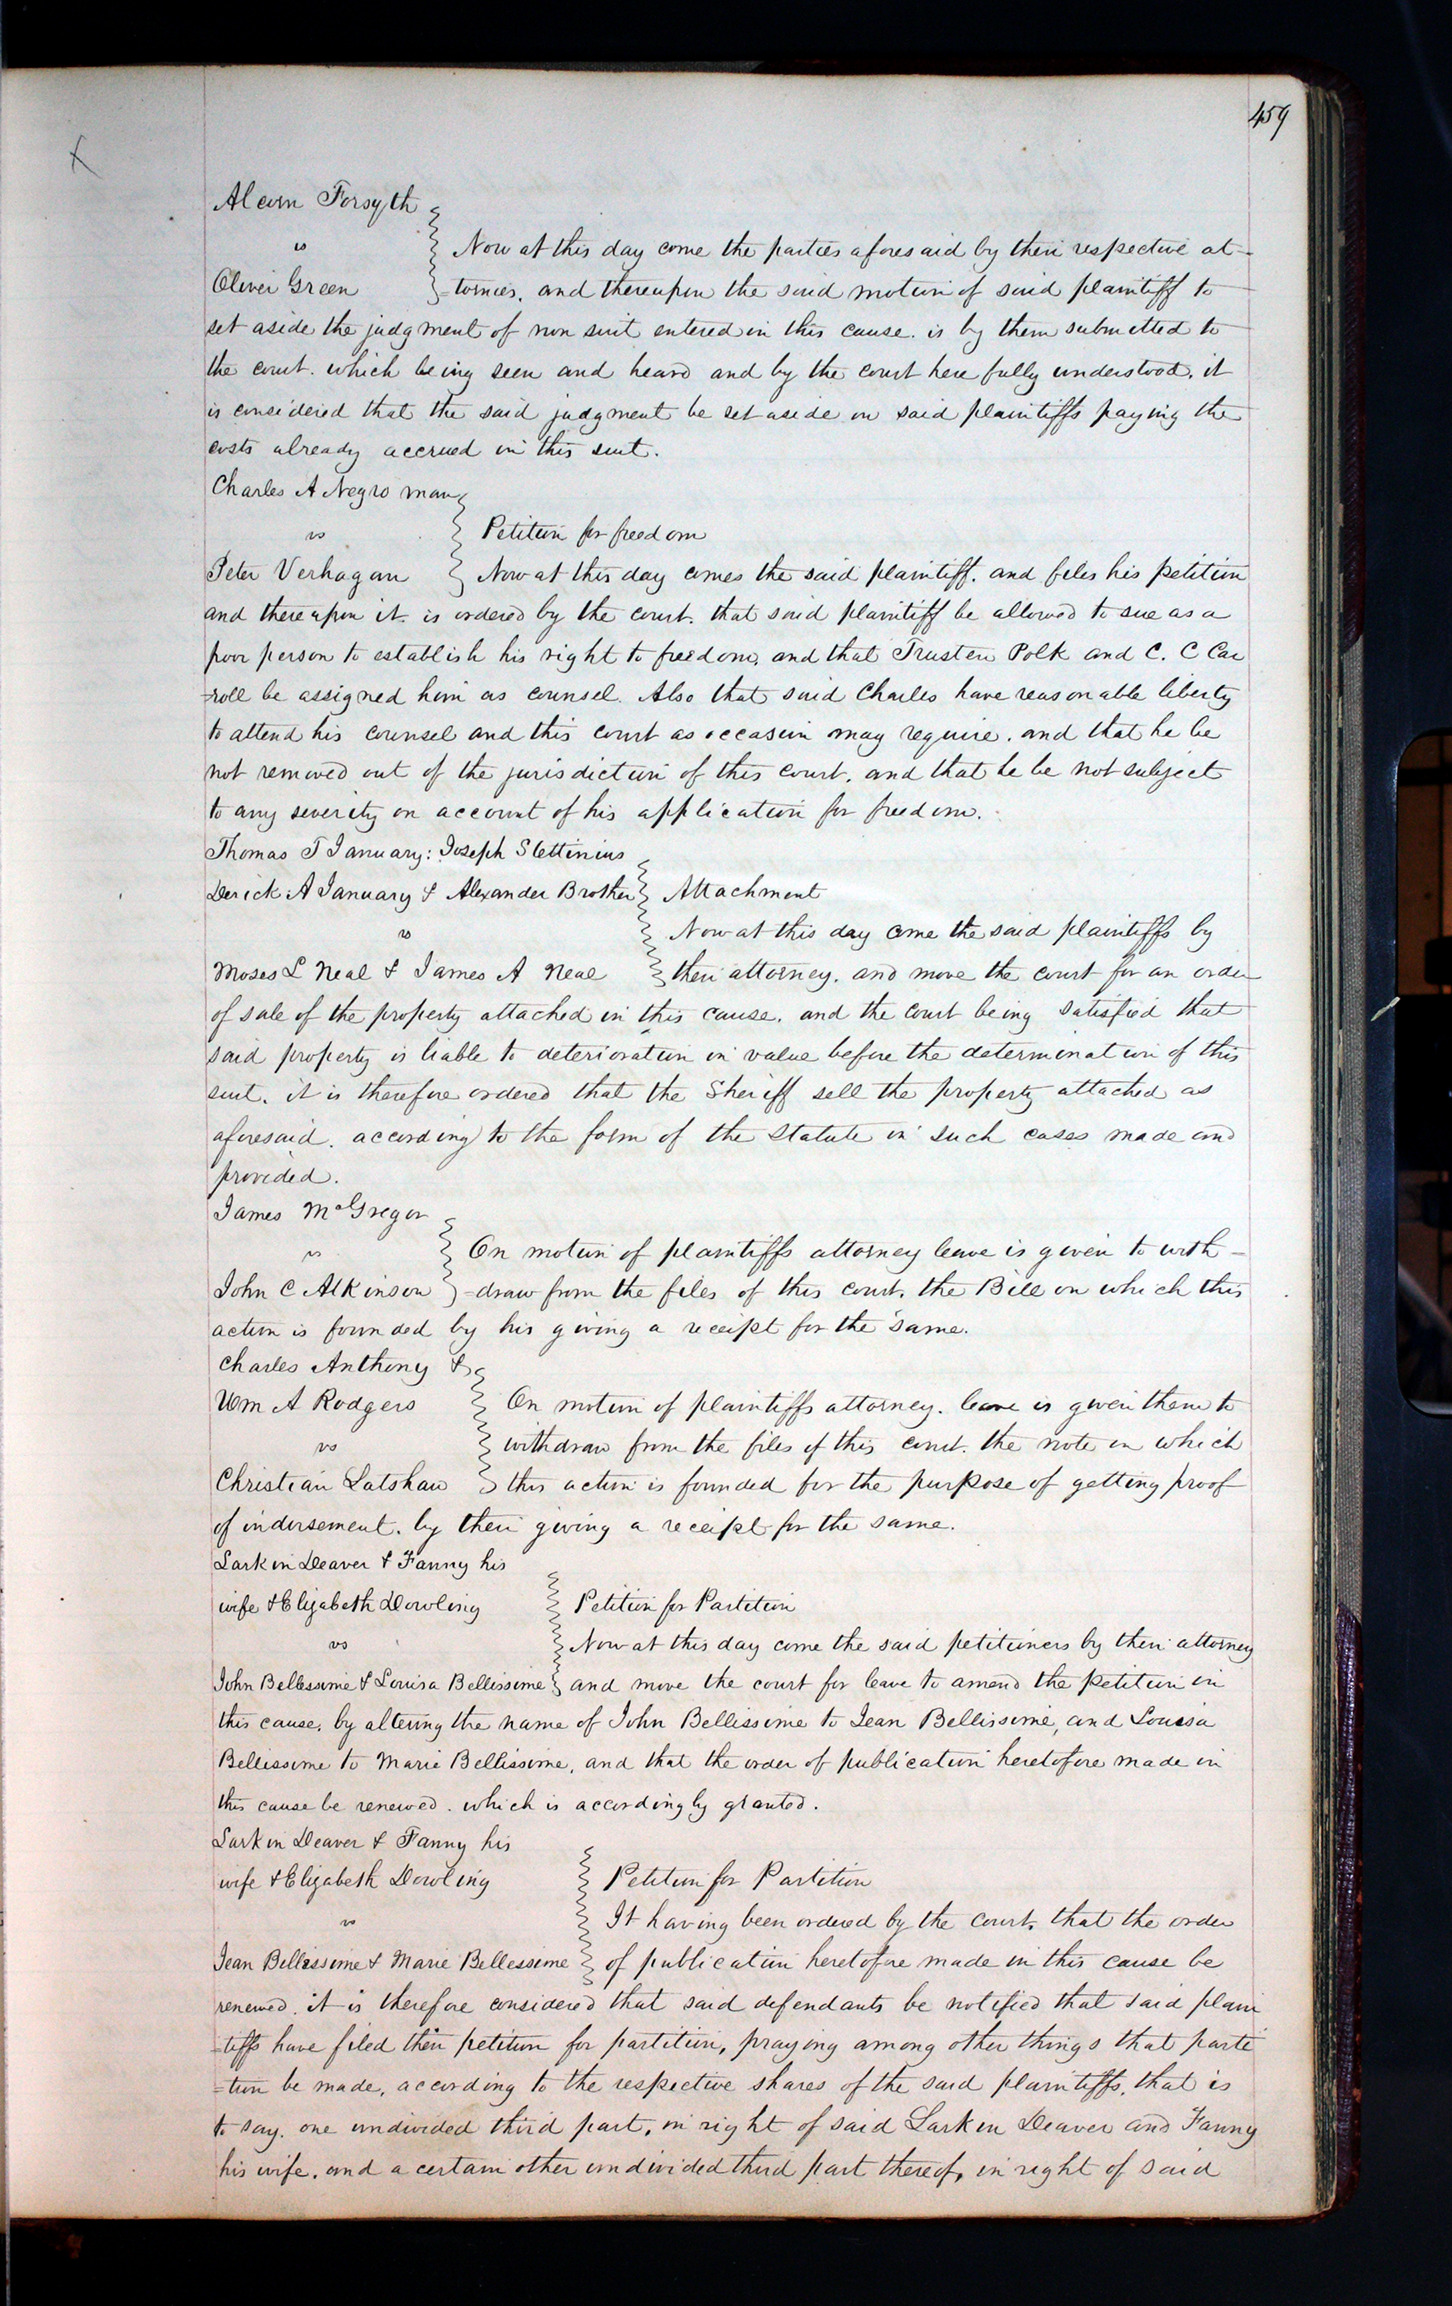 459
Alcorn Forsyth
vs
Now at this day come the parties aforesaid by their respective at-
Oliver Green
=tornies, and thereupon the said motion of said plaintiff to
set aside the judgment of non suit entered in this cause. is by them submitted to
the court. which being seen and heard and by the court here fully understood, it
is considered that the said judgment be set aside on said plaintiffs paying the
costs already accrued in this suit.
Charles A Negro man
vs
Petition for freedom
Peter Verhagan
Now at this day comes the said plaintiff. and files his petition
and thereupon it. is ordered by the court. that said plaintiff be allowed to sue as a
poor person to establish his right to freedom, and that Trusten Polk and C. C Car
=roll be assigned him as counsel. Also that said Charles have reasonable liberty
to attend his counsel and this court as occasion may require. and that he be
not removed out of the jurisdiction of this court. and that he be not subject
to any severity on account of his application for freedom.
Thomas T January: Joseph Stettinius
Derick A January & Alexander Brother
Attachment
vs
Now at this day come the said plaintiffs by
Moses L Neal & James A Neal
their attorney. and move the court for an order
of sale of the property attached in this cause. and the court being satisfied that
said property is liable to deterioration in value before the determination of this
suit. it is therefore ordered that the Sheriff sell the property attached as
aforesaid. according to the form of the Statute in such cases made and
provided.
James McGregor
vs
On motion of plaintiffs attorney leave is given to with-
John C Atkinson
=draw from the files of this court. the Bill on which this
action is founded by his giving a receipt for the same.
Charles Anthony &
Wm A Rodgers
On motion of plaintiffs attorney. leave is given them to
vs
withdraw from the files of this court. the note on which
Christian Latshaw
this action is founded for the purpose of getting proof
of indorsement. by their giving a receipt for the same.
Larkin Deaver & Fanny his
wife & Elizabeth Dowling
Petition for Partition
vs
Now at this day come the said petitioners by their attorney
John Bellessime & Louisa Bellissime
and move the court for leave to amend the petition in
this cause. by altering the name of John Bellissime to Jean Bellissime, and Louisa
Bellissime to Marie Bellissime, and that the order of publication heretofore made in
this cause be renewed. which is accordingly granted.
Larkin Deaver & Fanny his
wife & Elizabeth Dowling
Petition for Partition
vs
It having been ordered by the court. that the order
Jean Bellissime & Marie Bellessime
of publication heretofore made in this cause be
renewed. it is therefore considered that said defendants be notified that said plain
=tiffs have filed their petition for partition, praying among other things that parti
=tion be made, according to the respective shares of the said plaintiffs, that is
to say. one undivided third part, in right of said Larkin Deaver and Fanny
his wife. and a certain other undivided third part thereof, in right of said